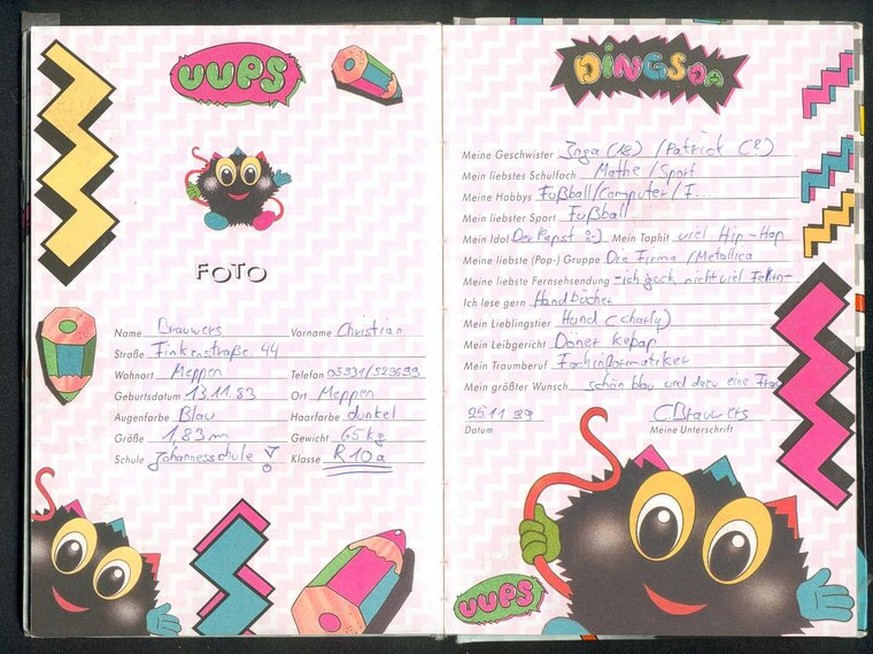 UUPS
FOTO
Name Brauwers Vorname Christian
Straße Finkenstraße 44
Wohnort Meppen Telefon
Geburtsdatum 13.11.83 Ort Meppen
Augenfarbe Blau Haarfarbe dunkel
Größe 1,83m Gewicht 65 kg
Schule Johannesschule Klasse R 10a
DINGSDA
Meine Geschwister Inga (18) / Patrick
Mein liebstes Schulfach Mathe / Sport
Meine Hobbys Fußball/Computer/F...
Mein liebster Sport Fußball
Mein Idol Der Papst :-) Mein Tophit viel Hip-Hop
Meine liebste (Pop-) Gruppe Die Firma / Metallica
Meine liebste Fernsehsendung -ich guck nicht viel
Ich lese gern Handbücher
Mein Lieblingstier Hund (Charly)
Mein Leibgericht Döner Kebap
Mein Traumberuf Fachinformatiker
Mein größter Wunsch schön blau und dazu eine
25.11.99 C.Brauwers
Datum Meine Unterschrift
UUPS